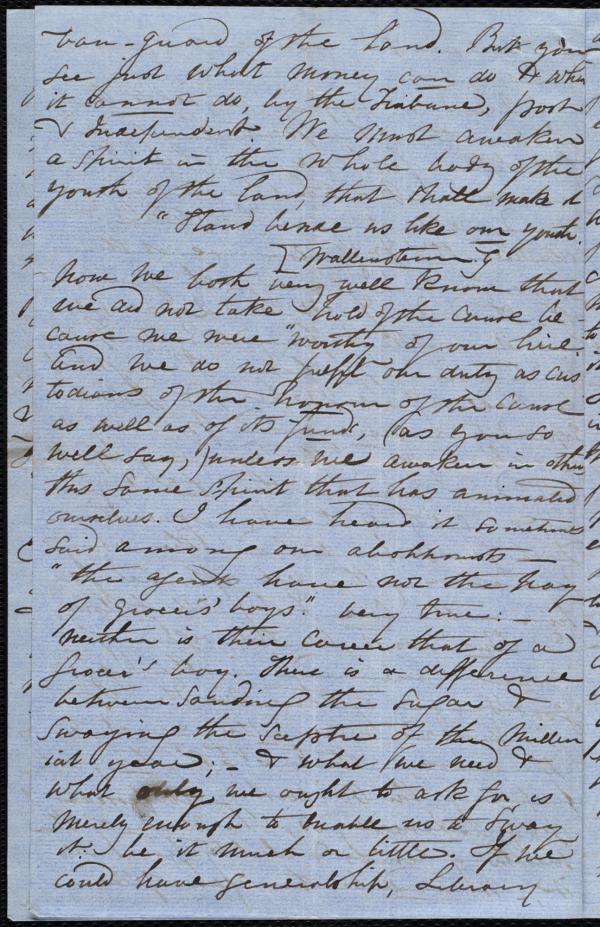 van-guard of the land. But you
see just what money can do & what
it cannot do, by the Tribune, post
& Independent. We must awaken
a spirit in the whole body of the
youth of the land, that shall make it
"Stand beside us like our youth.
[Wallenstein.]
Now we both very well know that
we did not take hold of the cause be
cause we were "worthy of our hire"
And we do not fulfil our duty as cus
todians of the honour of the cause
as well as of its funds, (as you so
well say,) unless we awaken in others
this same spirit that has animated
ourselves. I have heard it sometimes
said among our abolitionists —
"the agents have not the pay
of grocers' boys." Very true: —
neither is their career that of a
Grocer's boy. There is a difference
between Sanding the Sugar &
Swaying the sceptre of the Millen
ial year; — & what we need &
what only we ought to ask for, is
merely enough to enable us to sway
it: be it much or little. If we
could have generalship, Literary